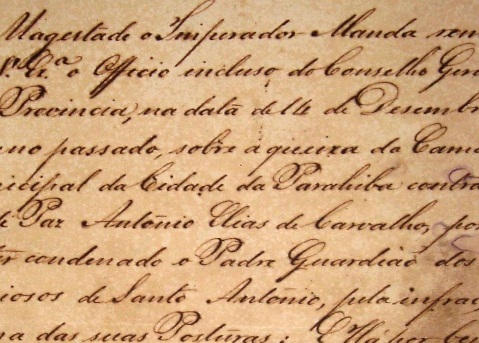 Magestade o Imperador Manda rem
S.ª Ex.ª o Officio incluso do Conselho Ger
Provincia, na data de 14 de Desembr
no passado, sobre a queixa da Cama
nicipal da Cidade da Parahiba contra
de Paz Antônio Elias de Carvalho, por
ter condenado o Padre Guardião dos
iosos de Santo Antônio, pela infraç
na das suas Posturas: